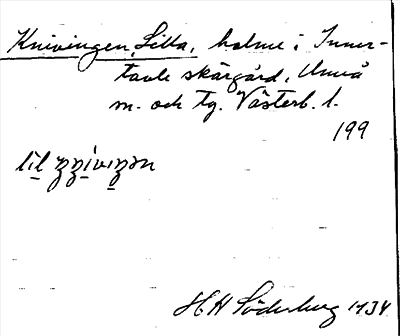 Knivingen, Lilla, holme i Inner-
tavle skärgård, Umeå
m. och tg. Västerb. l.
199
lil
H H Söderberg 1934